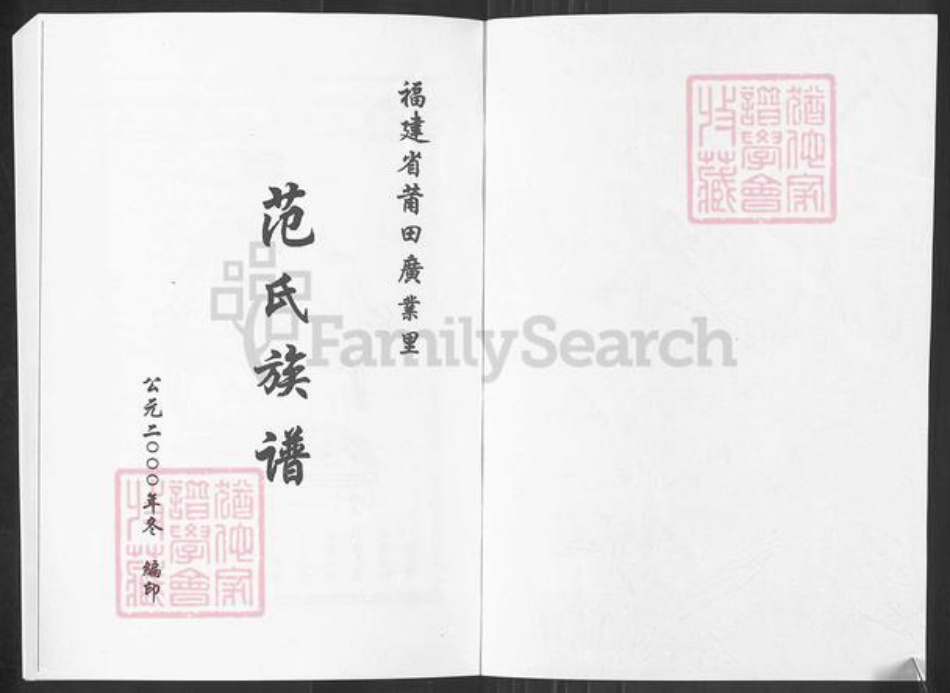 福建省莆田廣業里
范氏族谱
公元二〇〇〇年冬 編印
猶他家
譜學會
收藏
猶他家
譜學會
收藏
FamilySearch